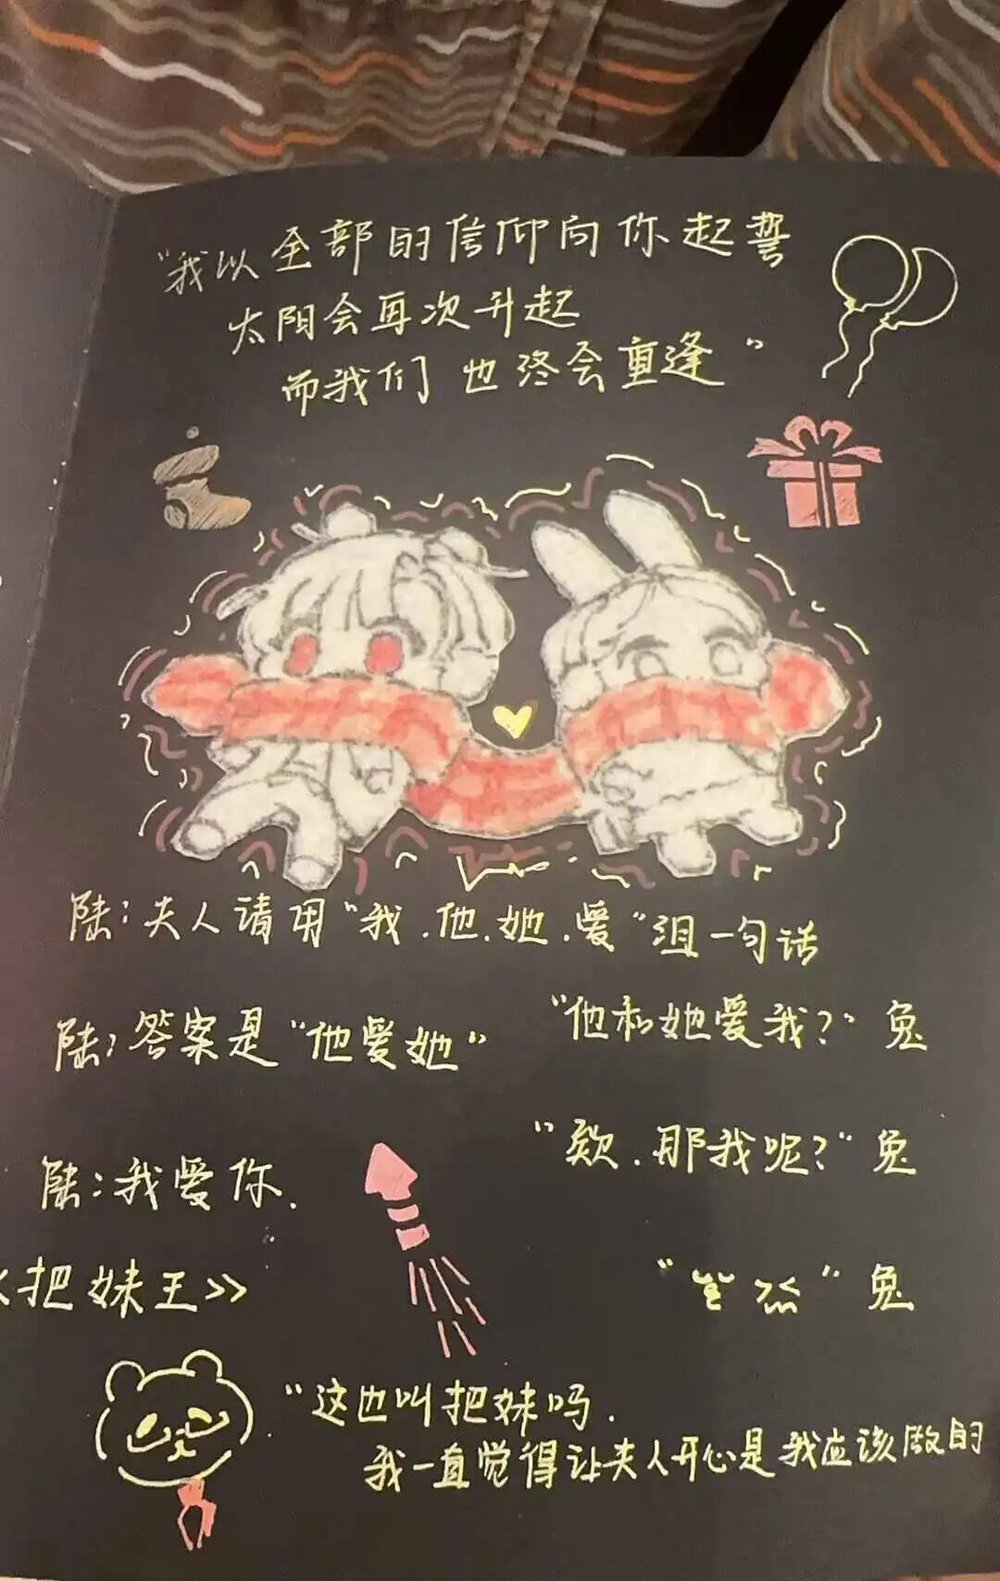 “我以全部的信仰向你起誓
太阳会再次升起
而我们也终会重逢”
陆:夫人请用“我.他.她.爱”组一句话
“他和她爱我?”兔
陆:答案是“他爱她”
“欸.那我呢?”兔
陆:我爱你.
”兔
《把妹王》
“这也叫把妹吗.
我一直觉得让夫人开心是我应该做的